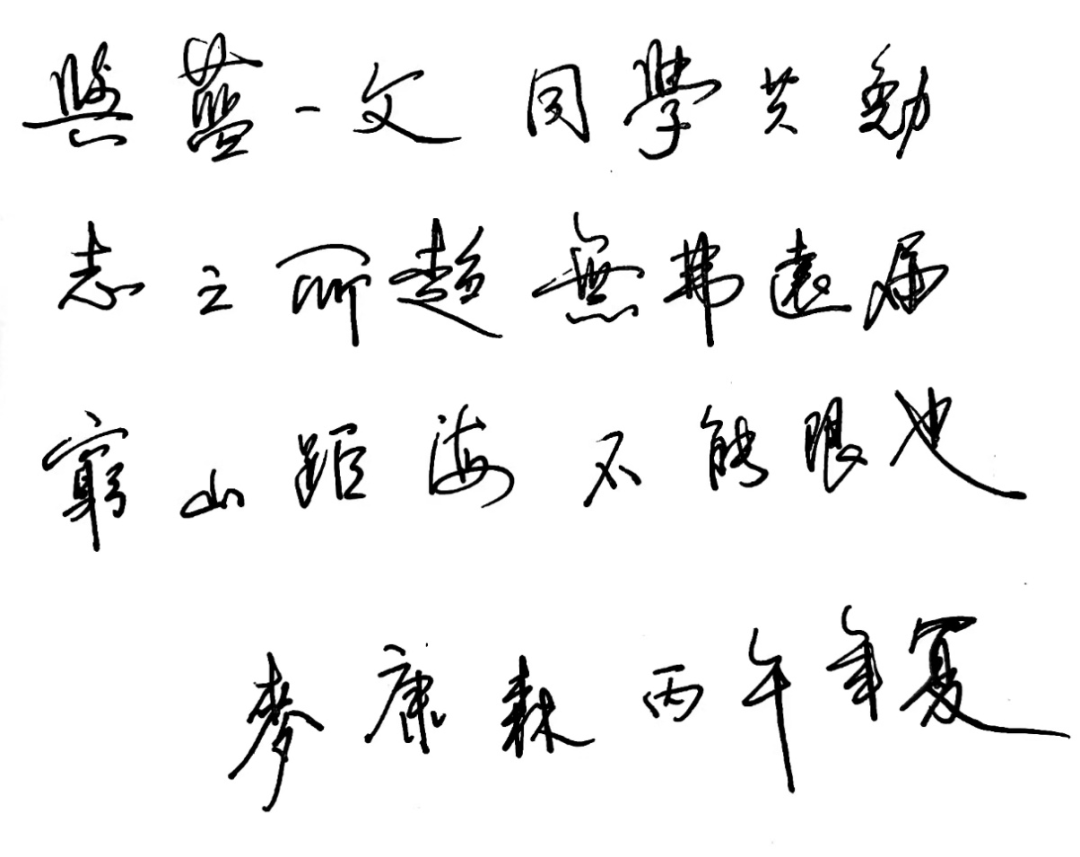 與藍一文同學共勉
志之所趨無弗遠屆
窮山距海不能限也
麥康森丙午年夏